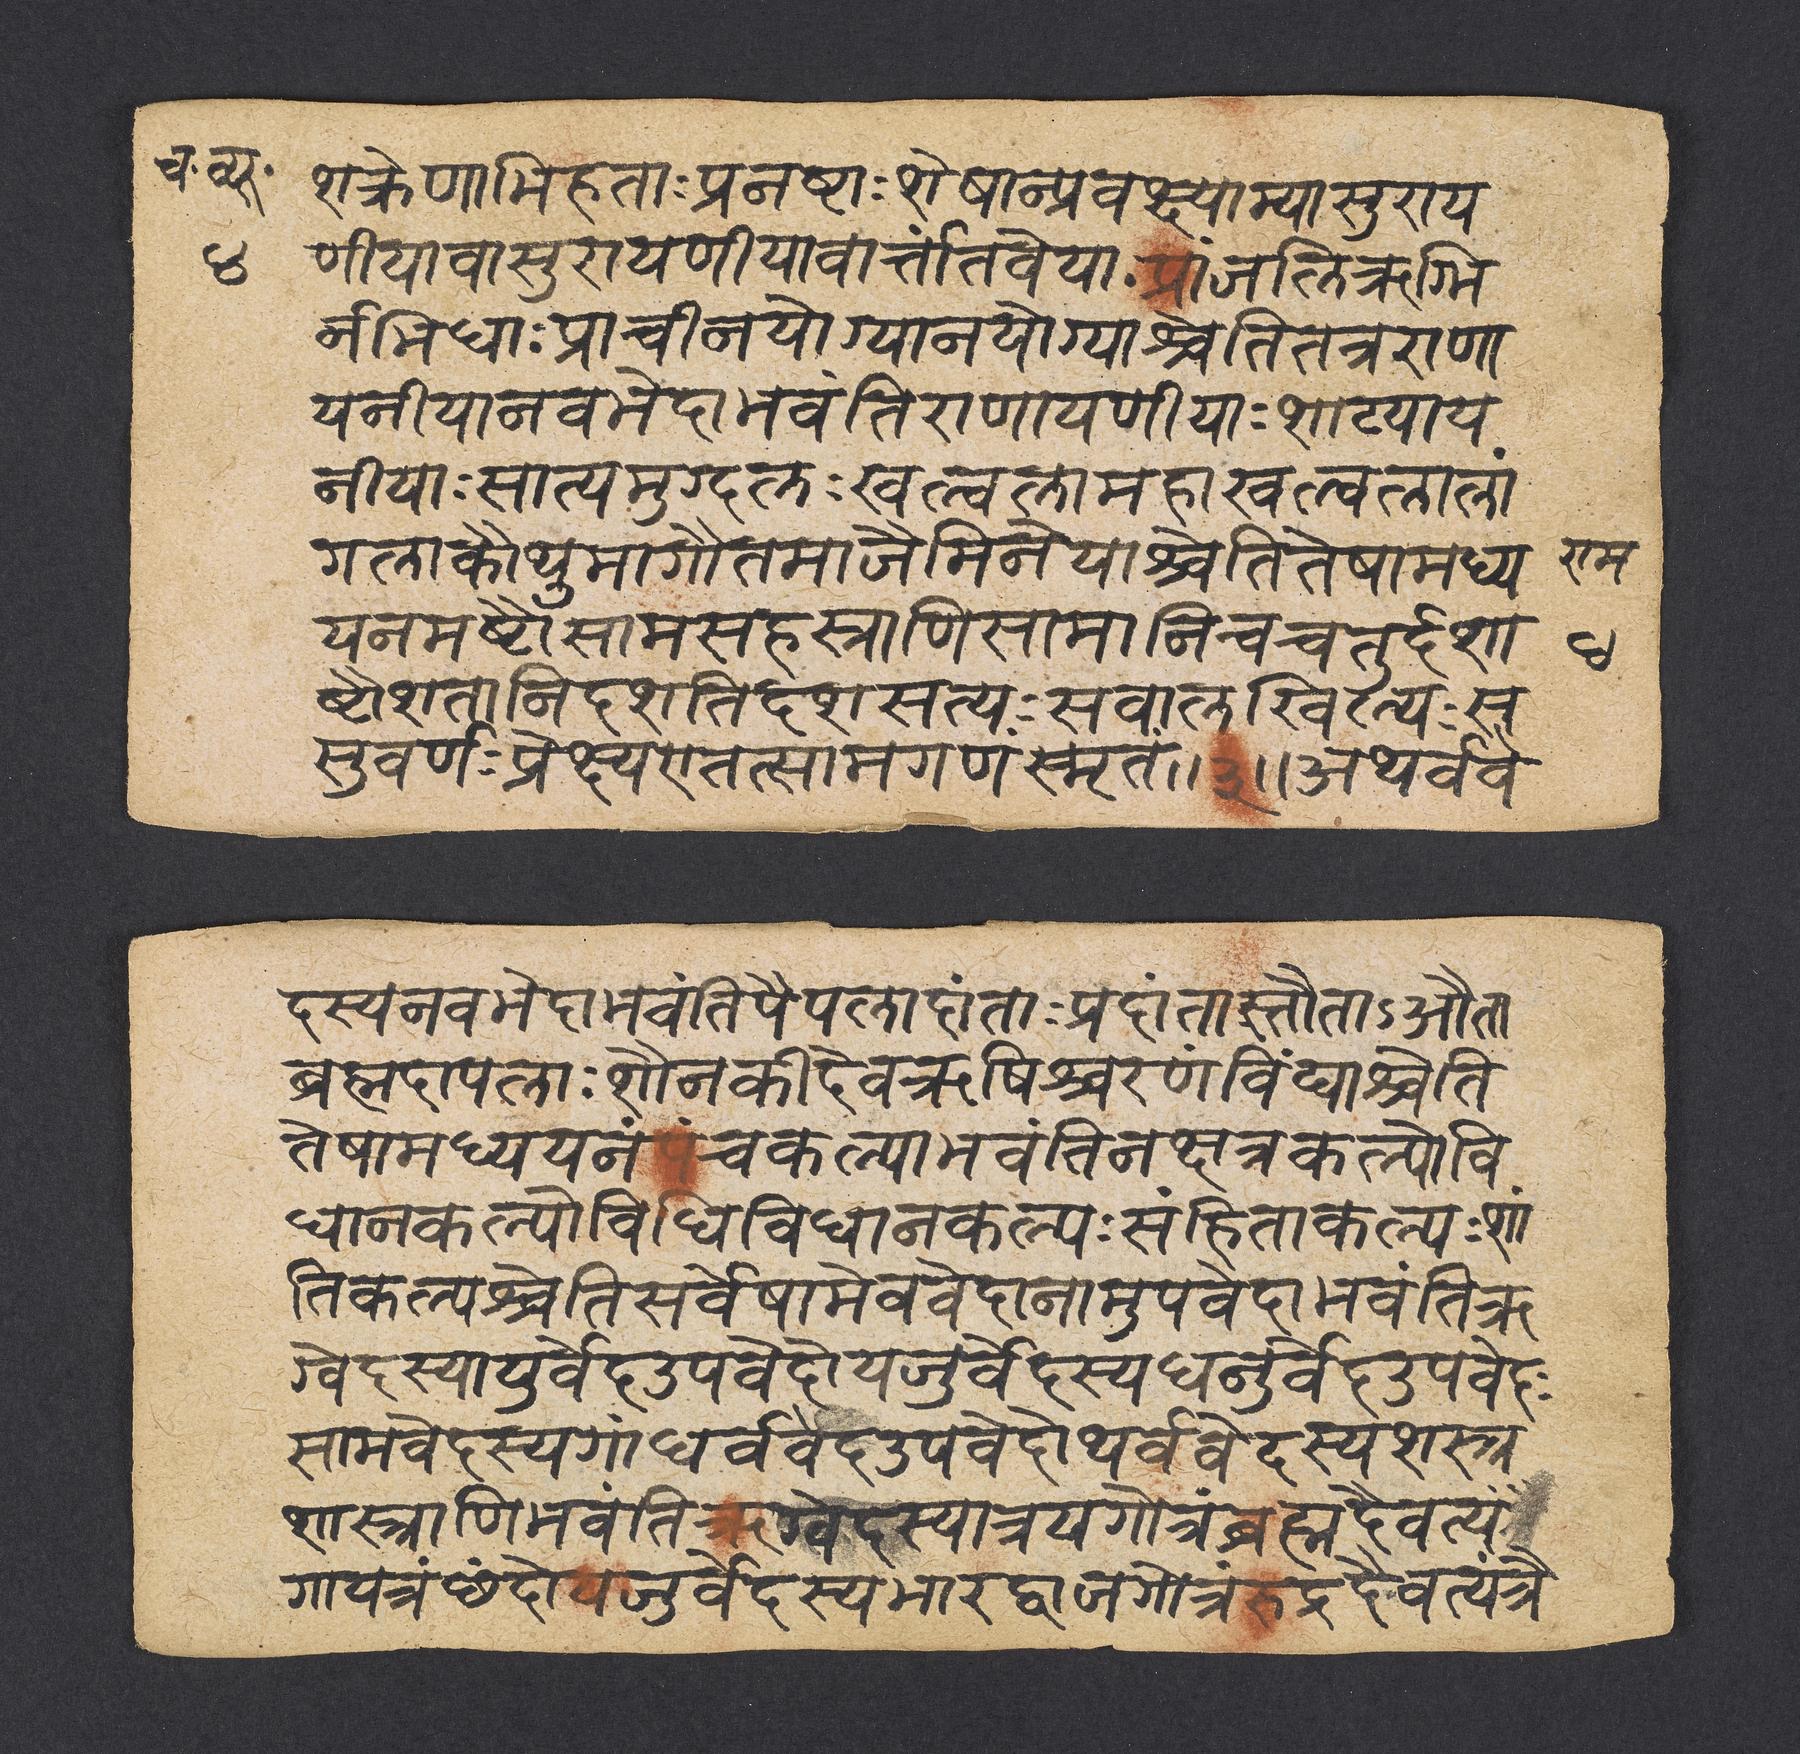 च॰ व्यू॰
४
शक्रेणाभिहताःप्रनष्टाःशेषान्प्रवक्ष्याम्यासुराय
णीयावासुरायणीयावार्त्तांतवेया॰प्रांजलिऋग्भि
र्नभिधाःप्राचीनयोग्यानयोग्याश्चेतितत्रराणा
यनीयानवभेदाभवंतिराणायणीयाःशाट्याय
नीयाःसात्यमुग्दलःखल्वलामहाखल्वलालां
गलाकौथुमागौतमाजैमिनेयाश्चेतितेषामध्य
यनमष्टौसामसहस्त्राणिसामानिचचतुर्दशा
ष्टौशतानिदशतिदशसत्यःसवालखिल्यःस
सुवर्णःप्रेक्ष्यएतत्सामगणंस्मृतं॥३॥अथर्ववे
राम
४
दस्यनवभेदाभवंतिपैपलादांताःप्रदांतास्तौताऽऔता
ब्रह्मदापलाःशौनकीदेवऋषिश्चरणंविंघाश्चेति
तेषामध्ययनंपंचकल्पाभवंतिनक्षत्रकल्पोवि
धानकल्पोविधिविधानकल्पःसंहिताकल्पःशां
तिकल्पश्चेतिसर्वेषामेववेदानामुपवेदाभवंतिऋ
ग्वेदस्यायुर्वेदउपवेदोयजुर्वेदस्यधनुर्वेदउपवेदः
सामवेदस्यगांधर्ववेदउपवेदोथर्ववेदस्यशस्त्र
शास्त्राणिभवंतिऋग्वेदस्यात्रयगोत्रंब्रह्मदैवत्यं
गायत्रंछंदोयजुर्वेदस्यभारद्वाजगोत्रंरुद्रदैवत्यंत्रै